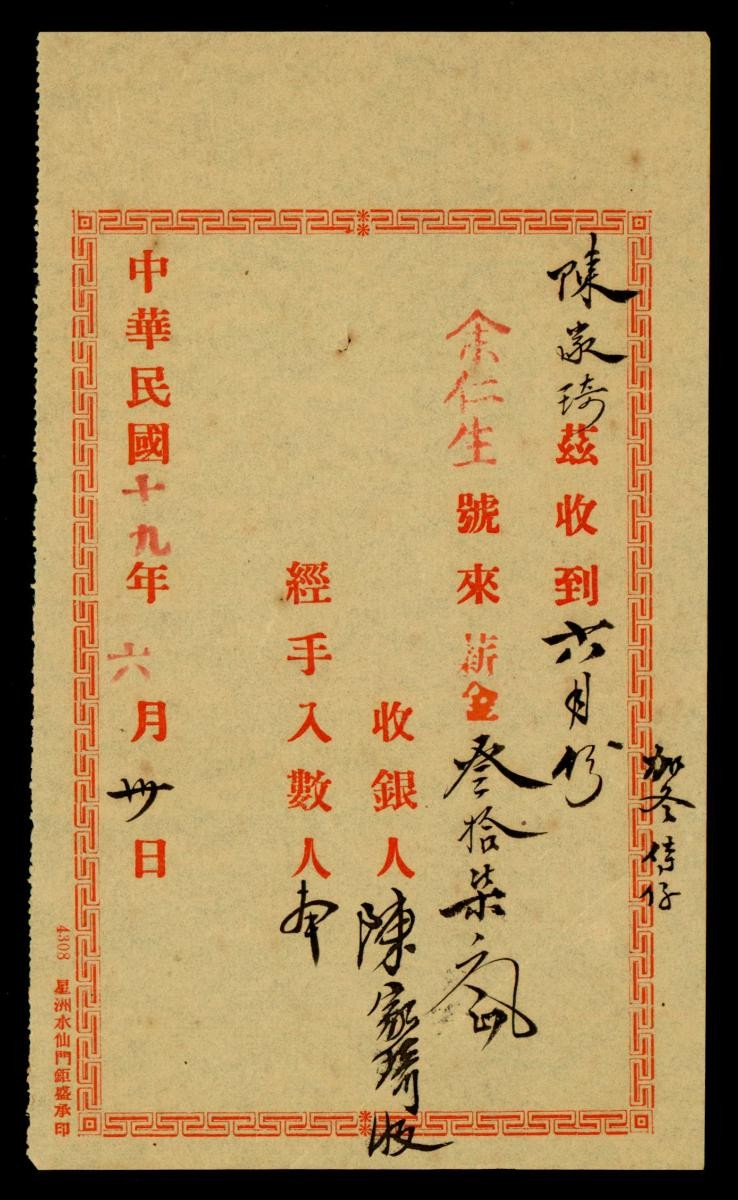 陳家琦茲收到六月份
余仁生號來薪金叁拾柒元正
收銀人陳家琦收
經手入數人
中華民國十九年六月卅日
4308 星洲水仙門鉅盛承印